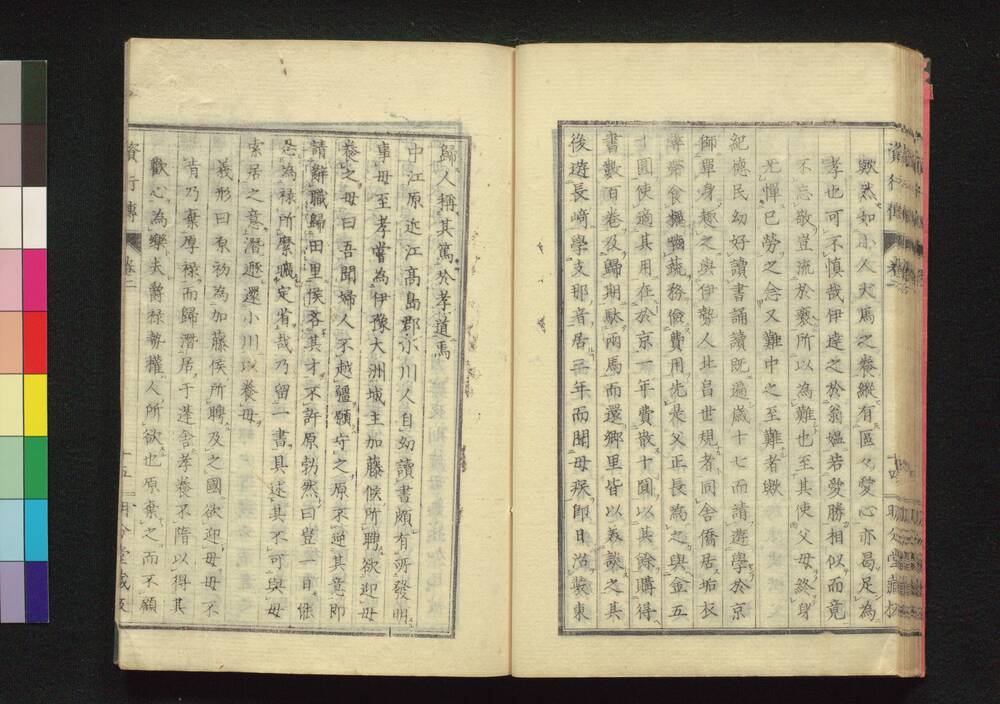 歟然如小人犬馬之養縱有區々愛心亦曷足為
孝也可不慎哉伊達之於翁媼若愛勝相似而竟
不忘敬豈流於褻所以為難也至其使父母終身
无憚已勞之念又難中之至難者歟
紀德民幼好讀書誦讀既遍歲十七而請遊學於京
師單身趣之與伊勢人北昌世規者同舍僑居垢衣
食糲蔬務儉費用先是父正長為之與金五
十圓使適其用在於京一年費散十圓以其餘購得
書數百卷及歸期駄兩馬而還鄉里皆以美談之其
後遊長崎學支那音居三年而聞母疾即日治裝東
資行傳
卷二
十四
歸人稱其篤於孝道焉
中江原近江高島郡小川人自幼讀書頗有所發明
事母至孝嘗為伊豫大洲城主加藤候所聘欲迎母
養之母曰吾聞婦人不越疆願守之原不逆其意即
請辭職歸田里候吝其才不許原勃然曰豈一日
為祿所縻曠定省哉乃留一書具述其不可與母
索居之意潛遯還小川以養母
義形曰原初為加藤侯所聘及之國欲迎母母不
肯乃棄厚祿而歸潛居于蓬舍孝養不隋以得其
歡心為樂夫爵祿勢權人所欲也原棄之而不顧
資行傳
卷二
十五